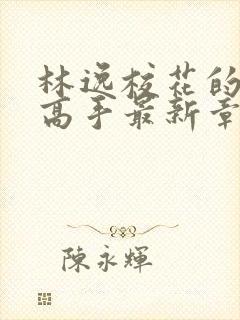 林逸校花的
高手最新章
陳永輝